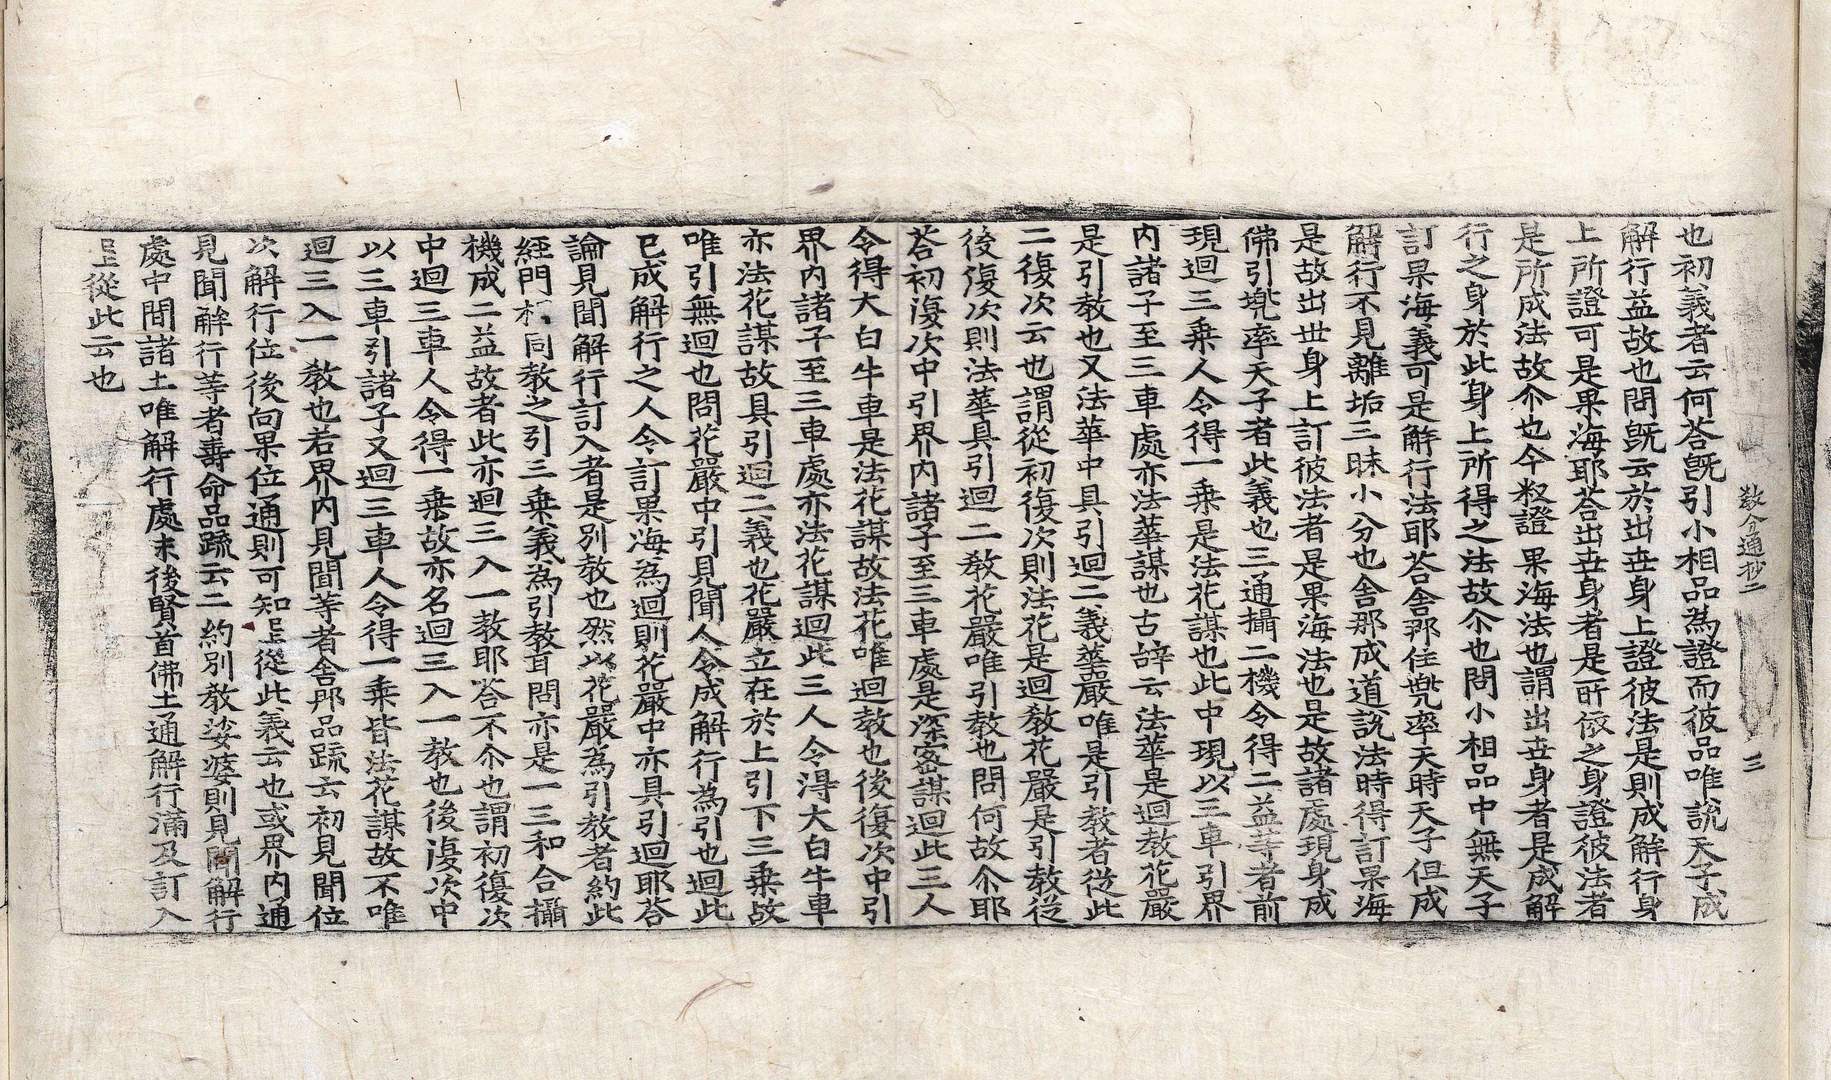 教分通抄二　三
也初義者云何荅旣引小相品為證而彼品唯說天子成
解行益故也問旣云於出世身上證彼法是則成解行身
上所證可是果海耶荅出世身者是所依之身證彼法者
是所成法故尒也今釋證果海法也謂出世身者是成解
行之身於此身上所得之法故尒也問小相品中無天子
訂果海義可是解行法耶荅舍那住兜率天時天子但成
解行不見離垢三昧小分也舍那成道說法時得訂果海
是故出世身上訂彼法者是果海法也是故諸處現身成
佛引兜率天子者此義也三通攝二機令得二益等者前
現迴三乗人令得一乗是法花謀也此中現以三車引界
内諸子至三車處亦法華謀也古辝云法華是迴教花嚴
是引教也又法華中具引迴二義華嚴唯是引教者従此
二復次云也謂從初復次則法花是迴教花嚴是引教従
後復次則法華具引迴二教花嚴唯引教也問何故尒耶
荅初復次中引界内諸子至三車處是深密謀迴此三人
令得大白牛車是法花謀故法花唯迴教也後復次中引
界内諸子至三車處亦法花謀迴此三人令得大白牛車
亦法花謀故具引迴二義也花嚴立在於上引下三乗故
唯引無迴也問花嚴中引見聞人令成解行為引也迴此
已成解行之人令訂果海為迴則花嚴中亦具引迴耶荅
論見聞解行訂入者是別教也然以花嚴為引教者約此
經門相同教之引三乗義為引教耳問亦是一三和合攝
機成二益故者此亦迴三入一教耶荅不尒也謂初復次
中迴三車人令得一乗故亦名迴三入一教也後復次中
以三車引諸子又迴三車人令得一乗皆法花謀故不唯
迴三入一教也若界内見聞等者舍那品疏云初見聞位
次解行位後向果位通則可知是從此義云也或界内通
見聞解行等者壽命品疏云二約別教娑婆則見聞解行
處中間諸土唯解行處末後賢首佛土通解行滿及訂入
是從此云也